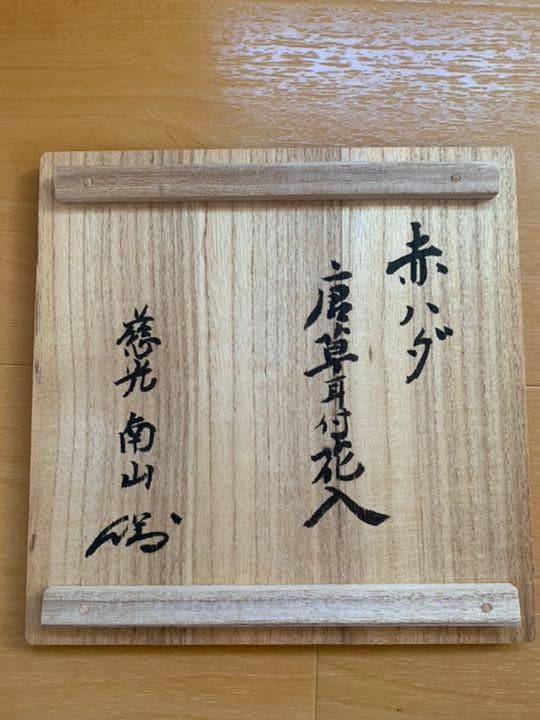 赤ハダ
唐草耳付花入
慈光 南山